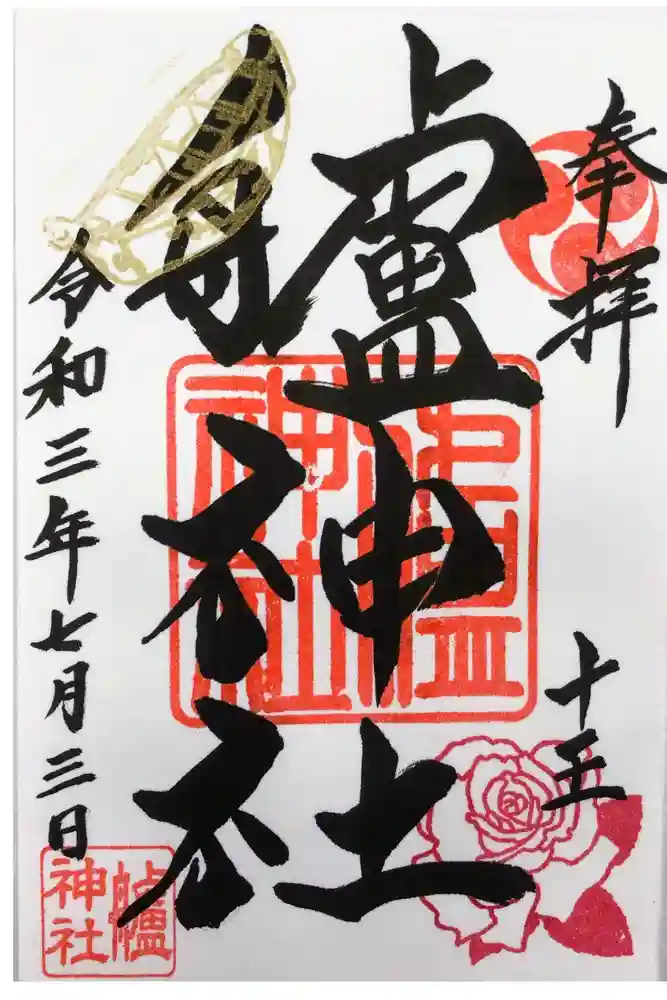 奉拝
十王
艫神社
艫神社
令和三年七月三日
艫神社